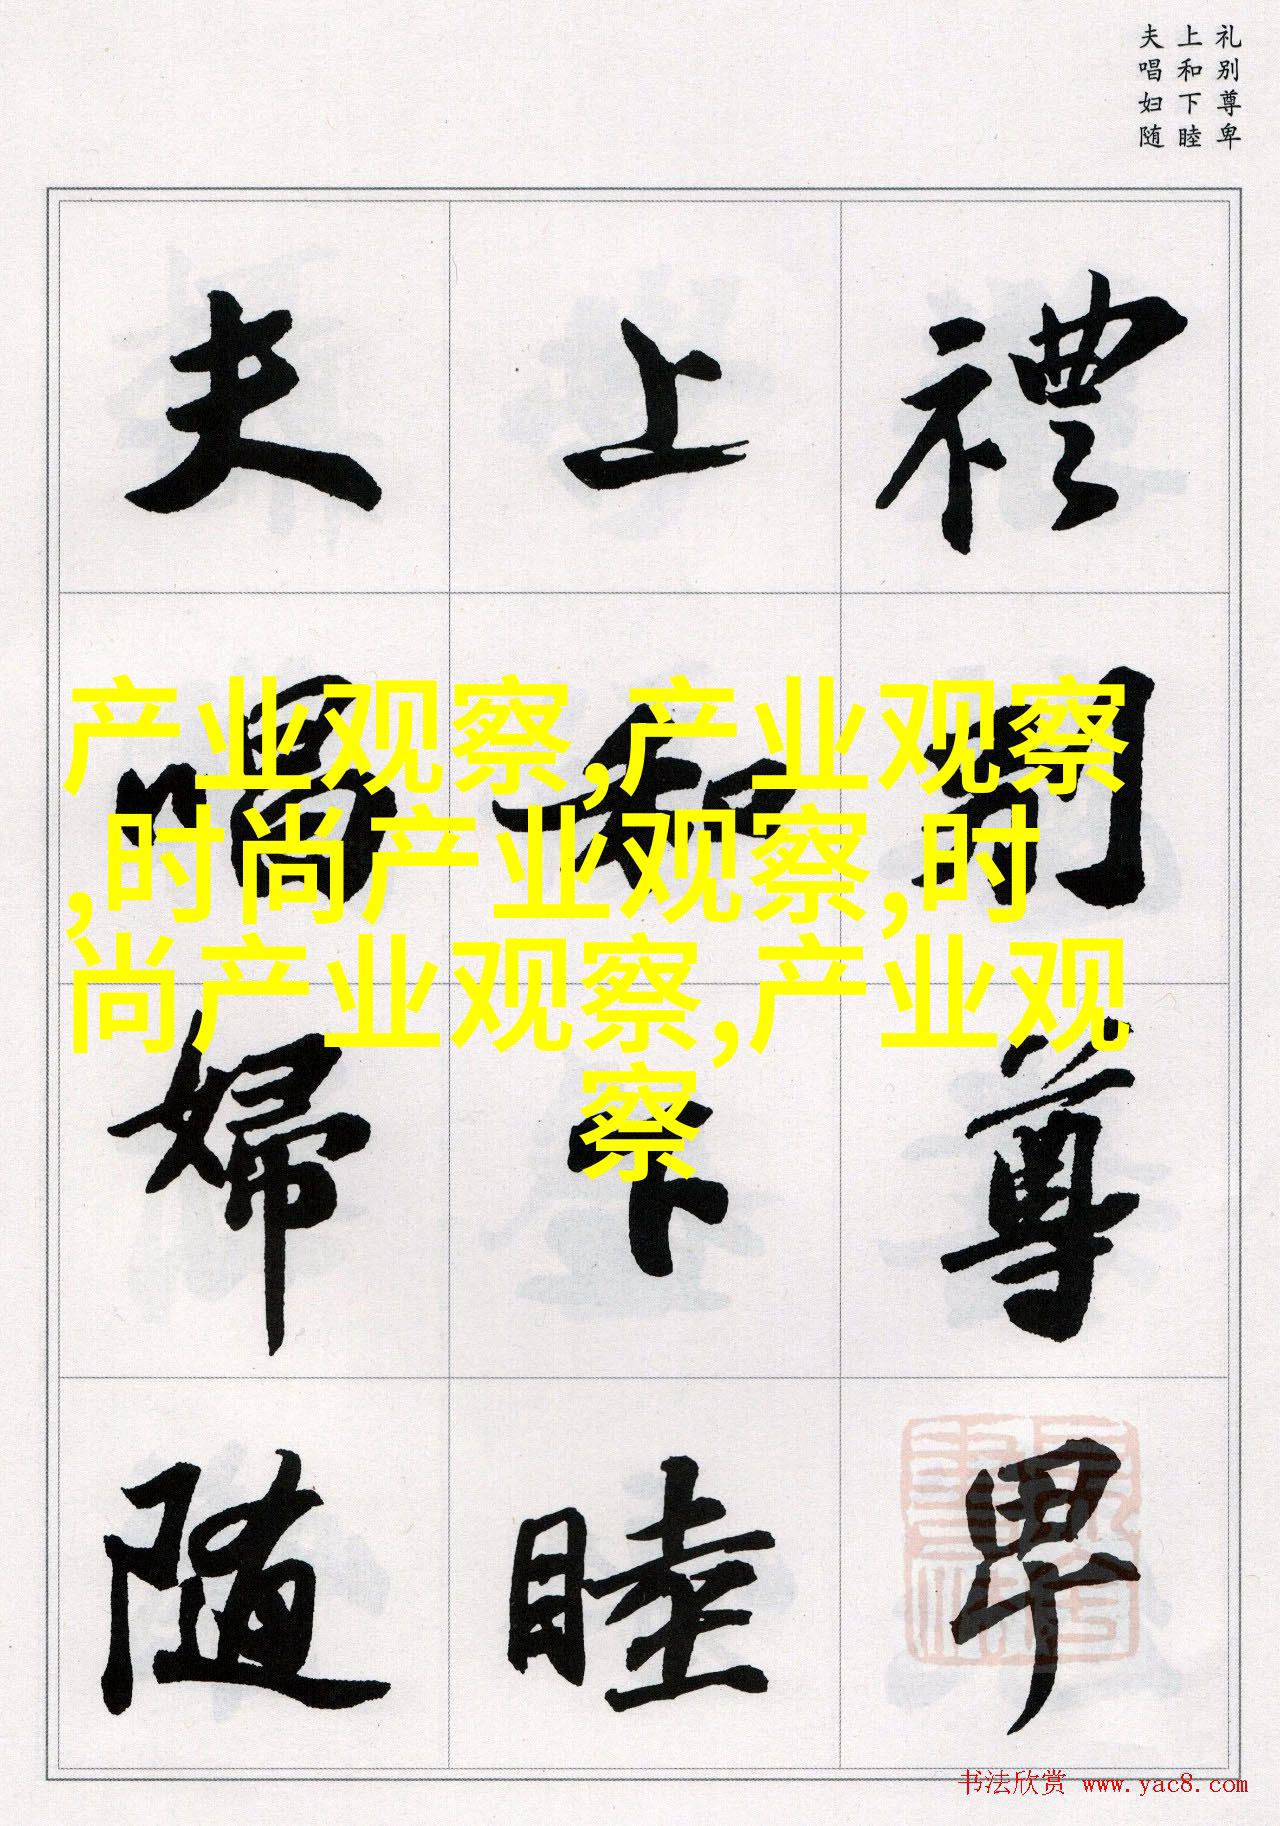 礼别尊卑
上和下睦
夫唱妇随
禮別尊卑
上和下睦
夫唱婦随
产业观察,产业观察
,时尚产业观察,时
尚产业观察,产业观
察
书法欣赏 www.yac8.com